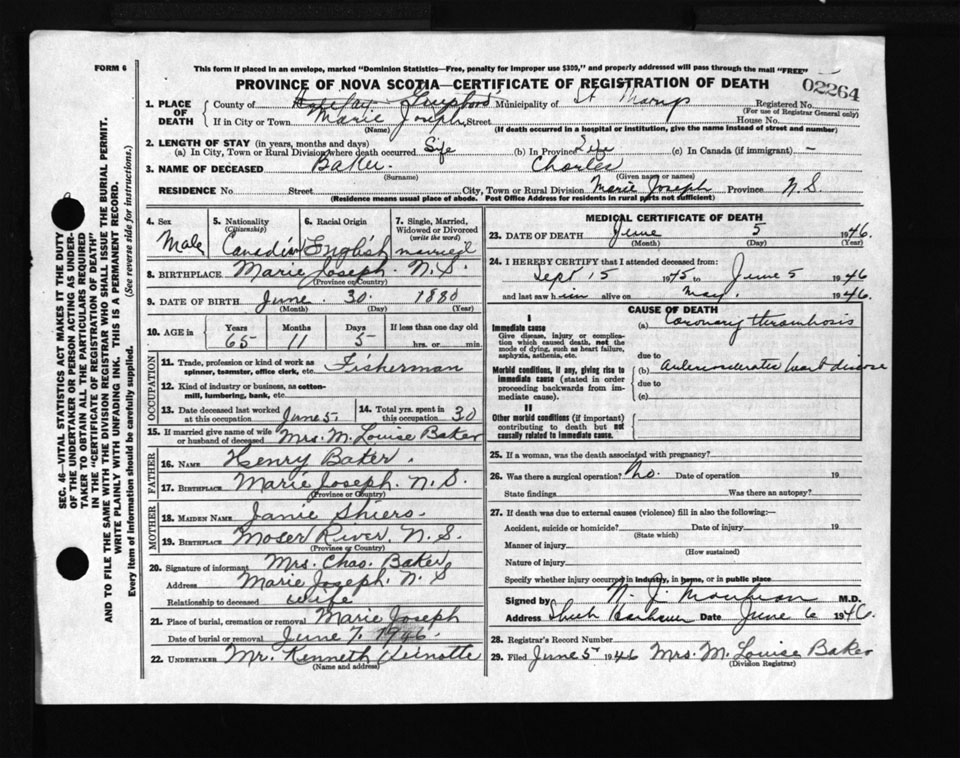 FORM 6
This form if placed in an envelope, marked "Dominion Statistics—Free, penalty for improper use $300," and properly addressed will pass through the mail "FREE"
PROVINCE OF NOVA SCOTIA—CERTIFICATE OF REGISTRATION OF DEATH
02264
1. PLACE OF DEATH
County of Halifax Guysboro Municipality of St Marys Registered No.
(For use of Registrar General only)
If in City or Town Marie Joseph Street House No.
(Name) (If death occurred in a hospital or institution, give the name instead of street and number)
2. LENGTH OF STAY (in years, months and days)
(a) In City, Town or Rural Division where death occurred Life (b) In Province Life (c) In Canada (if immigrant) –
3. NAME OF DECEASED Baker. Charles
(Surname) (Given name or names)
RESIDENCE No. Street City, Town or Rural Division Marie Joseph Province N.S.
(Residence means usual place of abode. Post Office Address for residents in rural parts not sufficient)
4. Sex
Male
5. Nationality (Citizenship)
Canadian
6. Racial Origin
English
7. Single, Married, Widowed or Divorced (write the word)
married
8. BIRTHPLACE Marie Joseph. N.S.
(Province or Country)
9. DATE OF BIRTH June. 30. 1880
(Month) (Day) (Year)
10. AGE in Years Months Days If less than one day old
65 11 5 hrs. or min.
OCCUPATION
11. Trade, profession or kind of work as spinner, teamster, office clerk, etc. Fisherman
12. Kind of industry or business, as cotton-mill, lumbering, bank, etc.
13. Date deceased last worked at this occupation June 5
14. Total yrs. spent in this occupation 30
15. If married give name of wife or husband of deceased Mrs. M. Louise Baker
FATHER
16. NAME Henry Baker.
17. BIRTHPLACE Marie Joseph. N.S.
(Province or Country)
MOTHER
18. MAIDEN NAME Janie Shiers.
19. BIRTHPLACE Moser River, N.S.
(Province or Country)
20. Signature of informant Mrs. Chas. Baker
Address Marie Joseph. N.S
Relationship to deceased wife
21. Place of burial, cremation or removal Marie Joseph
Date of burial or removal June 7. 1946.
22. UNDERTAKER Mr. Kenneth
(Name and address)
MEDICAL CERTIFICATE OF DEATH
23. DATE OF DEATH June 5 1946.
(Month) (Day) (Year)
24. I HEREBY CERTIFY that I attended deceased from:
Sept 15 1945 to June 5 1946
and last saw him alive on May. 1946.
CAUSE OF DEATH
I
Immediate cause
Give disease, injury or complication which caused death, not the mode of dying, such as heart failure, asphyxia, asthenia, etc.
(a) Coronary thrombosis
due to
Morbid conditions, if any, giving rise to immediate cause (stated in order proceeding backwards from immediate cause).
(b) heart disease
due to
(c)
II
Other morbid conditions (if important) contributing to death but not causally related to immediate cause.
25. If a woman, was the death associated with pregnancy?
26. Was there a surgical operation? No. Date of operation 19
State findings Was there an autopsy?
27. If death was due to external causes (violence) fill in also the following:—
Accident, suicide or homicide? Date of injury 19
(State which)
Manner of injury
(How sustained)
Nature of injury
Specify whether injury occurred in industry, in home, or in public place
Signed by N. J. M.D.
Address Date June 6 1946.
28. Registrar's Record Number
29. Filed June 5 1946 Mrs. M. Louise Baker
(Division Registrar)
SEC. 46—VITAL STATISTICS ACT MAKES IT THE DUTY
OF THE UNDERTAKER OR PERSON ACTING AS UNDER-
TAKER TO OBTAIN ALL THE PARTICULARS REQUIRED
IN THE "CERTIFICATE OF REGISTRATION OF DEATH"
AND TO FILE THE SAME WITH THE DIVISION REGISTRAR WHO SHALL ISSUE THE BURIAL PERMIT.
WRITE PLAINLY WITH UNFADING INK. THIS IS A PERMANENT RECORD.
Every item of information should be carefully supplied. (See reverse side for instructions.)